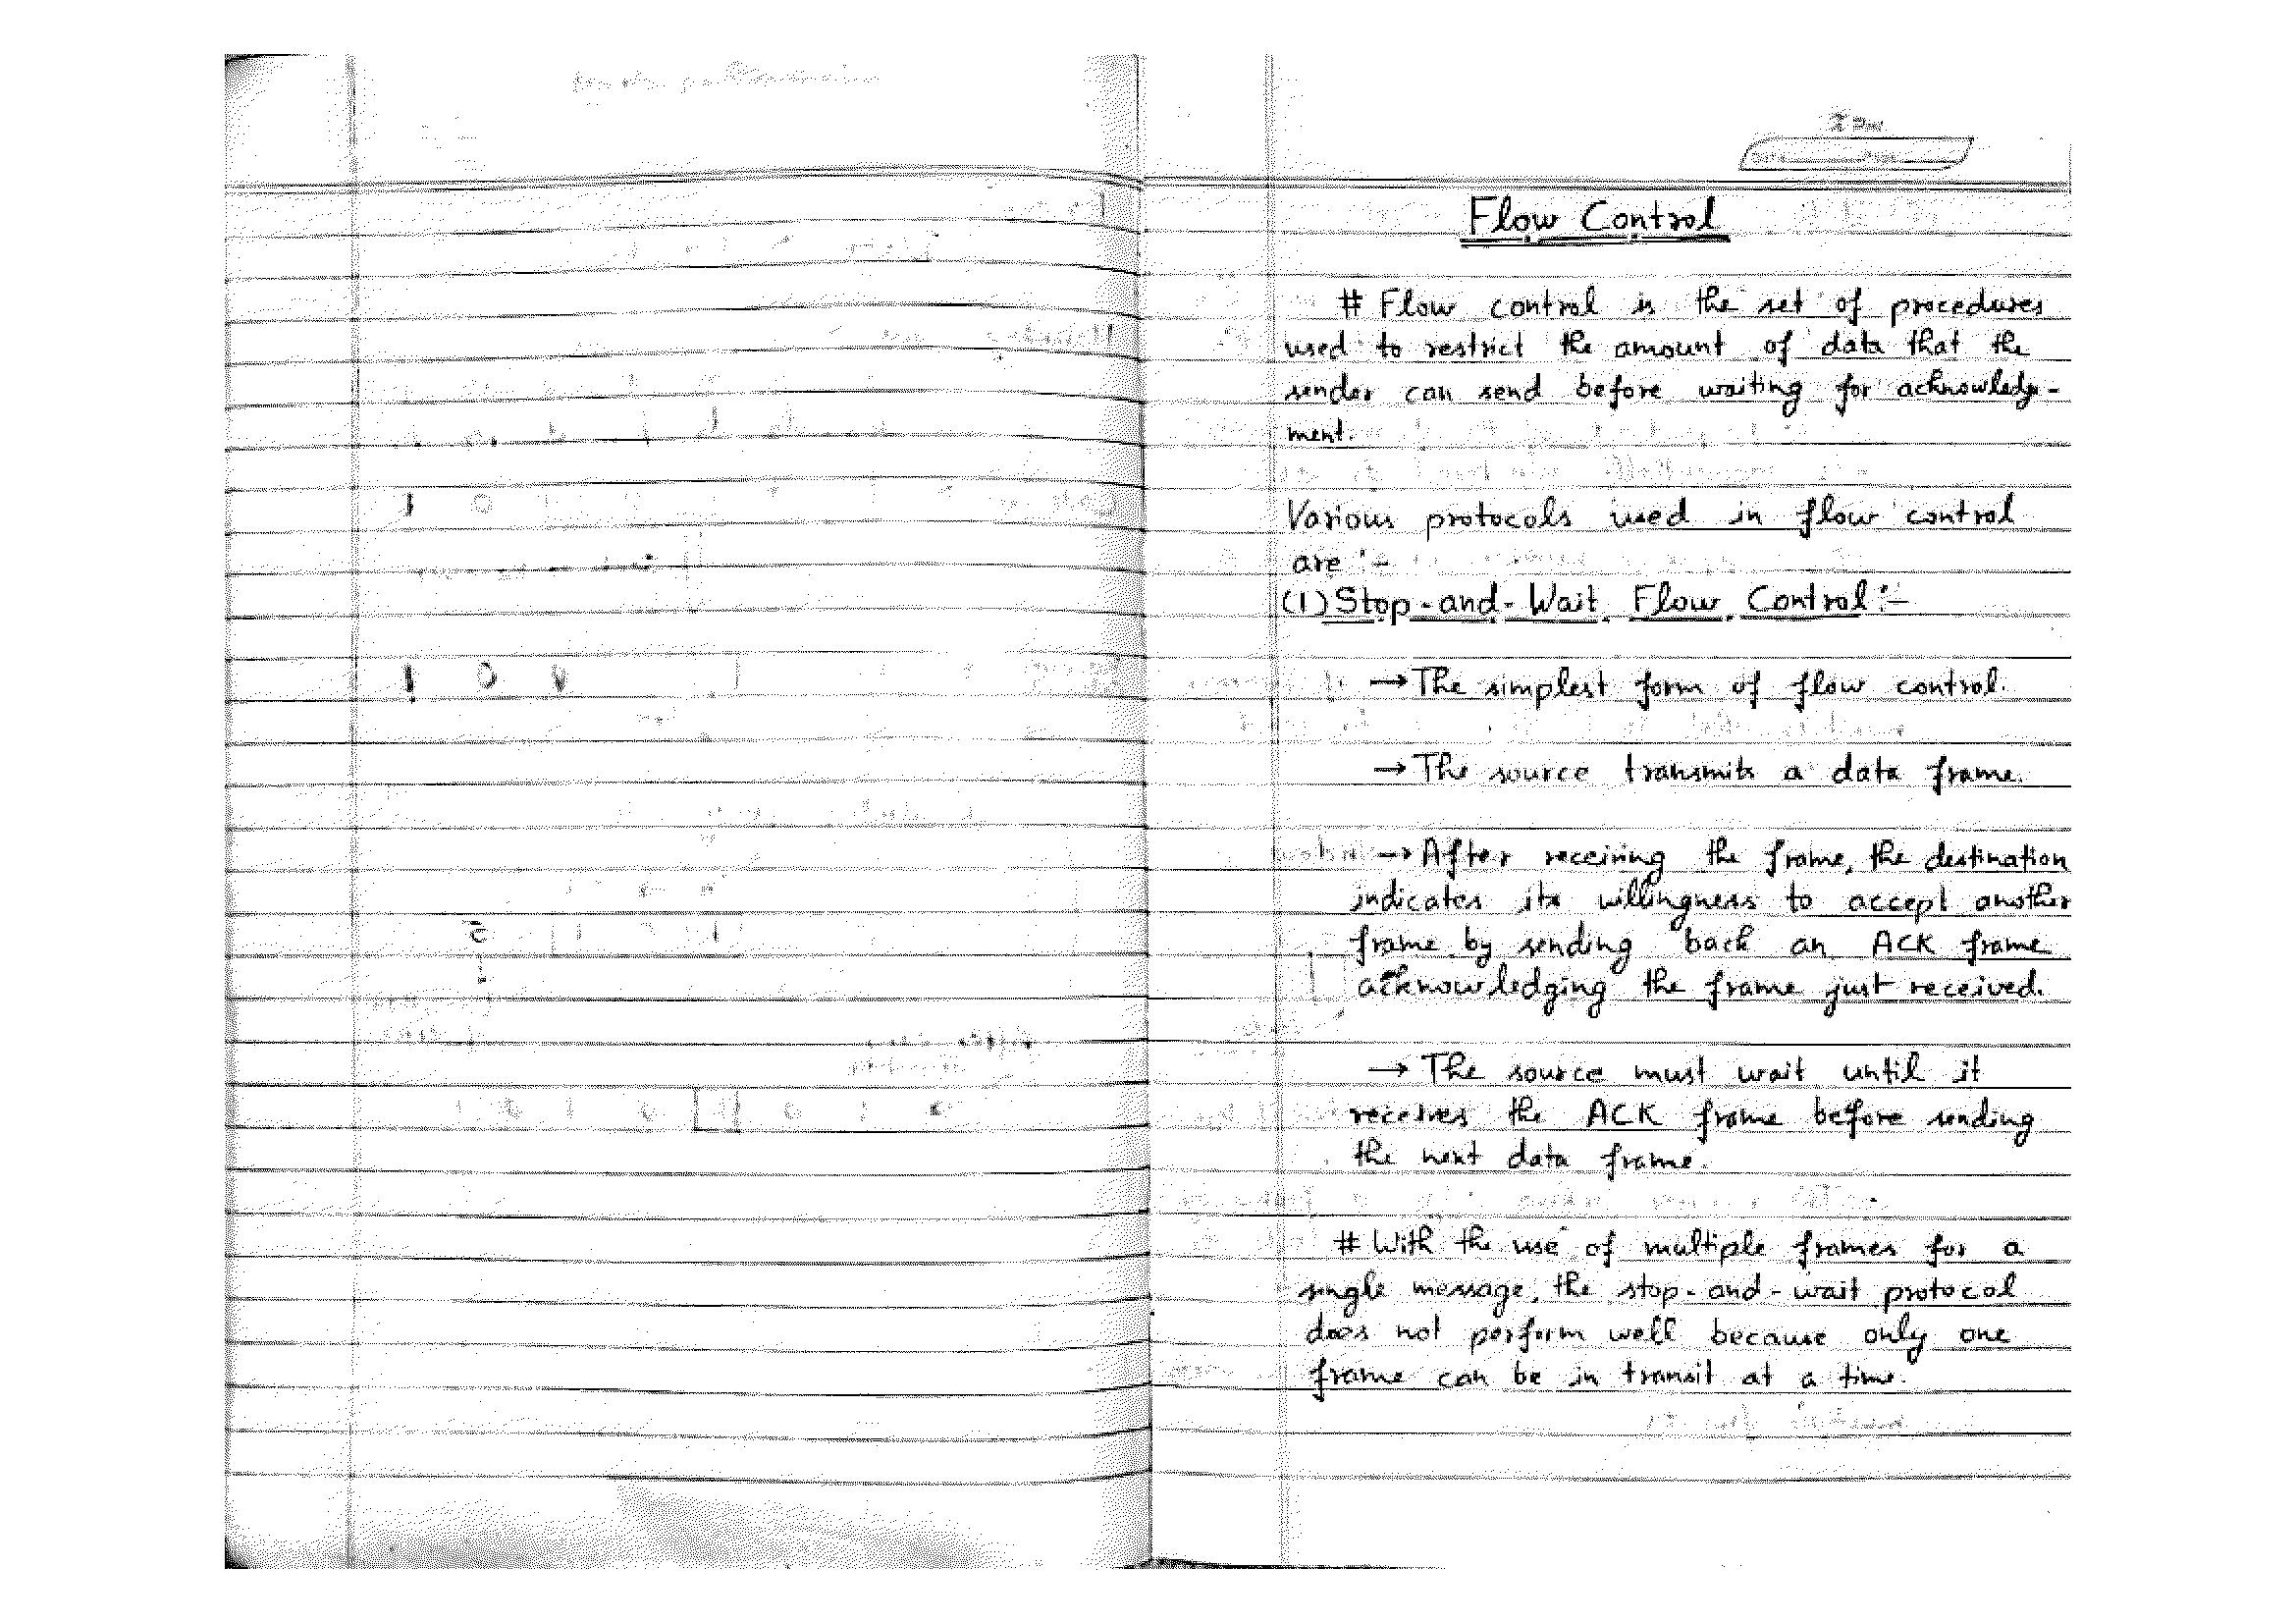 Flow Control
# Flow control is the set of procedures
used to restrict the amount of data that the
sender can send before waiting for acknowledg-
ment.
Various protocols used in flow control
are :-
(1) Stop-and-Wait Flow Control :-
→ The simplest form of flow control.
→ The source transmits a data frame.
→ After receiving the frame, the destination
indicates its willingness to accept another
frame by sending back an ACK frame
acknowledging the frame just received.
→ The source must wait until it
receives the ACK frame before sending
the next data frame.
# With the use of multiple frames for a
single message, the stop-and-wait protocol
does not perform well because only one
frame can be in transit at a time.